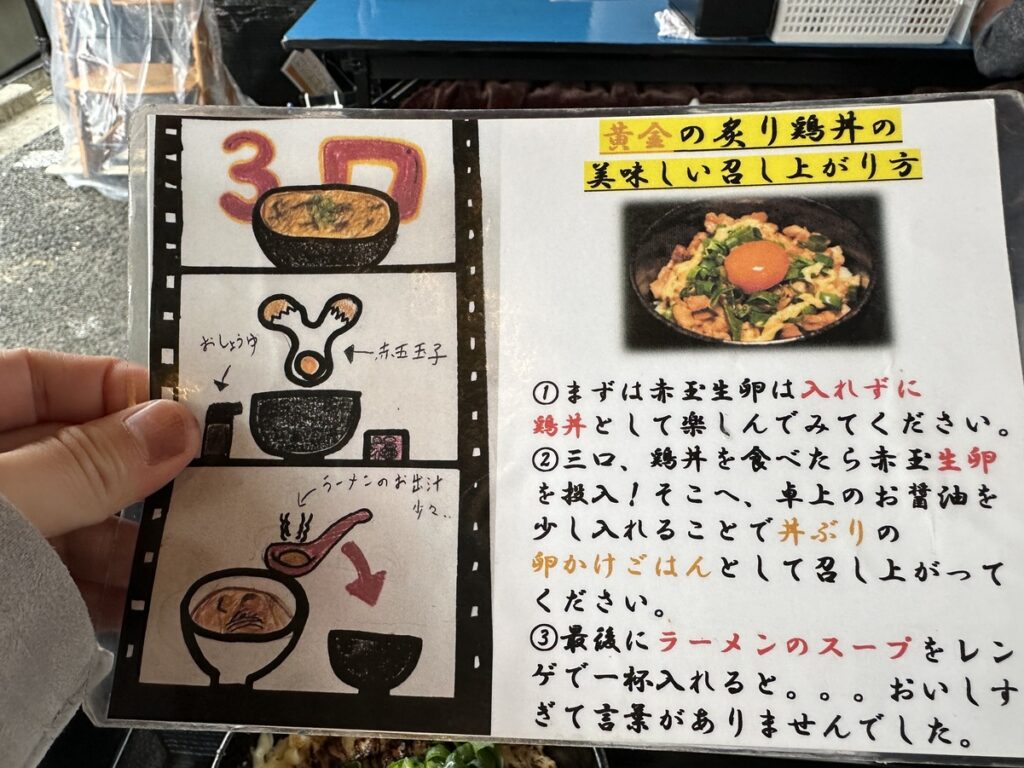 3口
おしょうゆ
赤玉玉子
ラーメンのお出汁
少々..
黄金の炙り鶏丼の
美味しい召し上がり方
①まずは赤玉生卵は入れずに
鶏丼として楽しんでみてください。
②三口、鶏丼を食べたら赤玉生卵
を投入!そこへ、卓上のお醤油を
少し入れることで丼ぶりの
卵かけごはんとして召し上がって
ください。
③最後にラーメンのスープをレン
ゲで一杯入れると。。。おいしす
ぎて言葉がありませんでした。